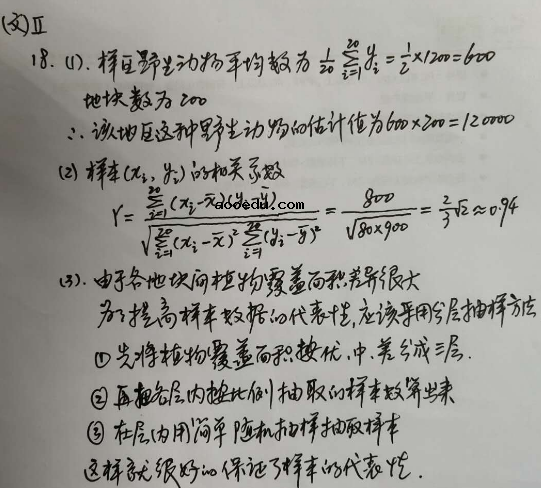 (文)Ⅱ
18.(1). 样区野生动物平均数为 1/20 ∑_{i=1}^{20} y_i = 1/2 × 1200 = 600
地块数为 200
∴ 该地区这种野生动物的估计值为 600 × 200 = 120000
(2) 样本(x_i, y_i)的相关系数
aooedu.com
r = ∑_{i=1}^{20} (x_i - x̄)(y_i - ȳ) / √(∑_{i=1}^{20} (x_i - x̄)² ∑_{i=1}^{20} (y_i - ȳ)²) = 800 / √(80×900) = 2/3 √2 ≈ 0.94
(3). 由于各地块间植物覆盖面积差异很大
为了提高样本数据的代表性,应该采用分层抽样方法
① 先将植物覆盖面积按优、中、差分成三层.
② 再把各层内按比例抽取的样本数算出来
③ 在层内用简单随机抽样抽取样本
这样就很好的保证了样本的代表性.